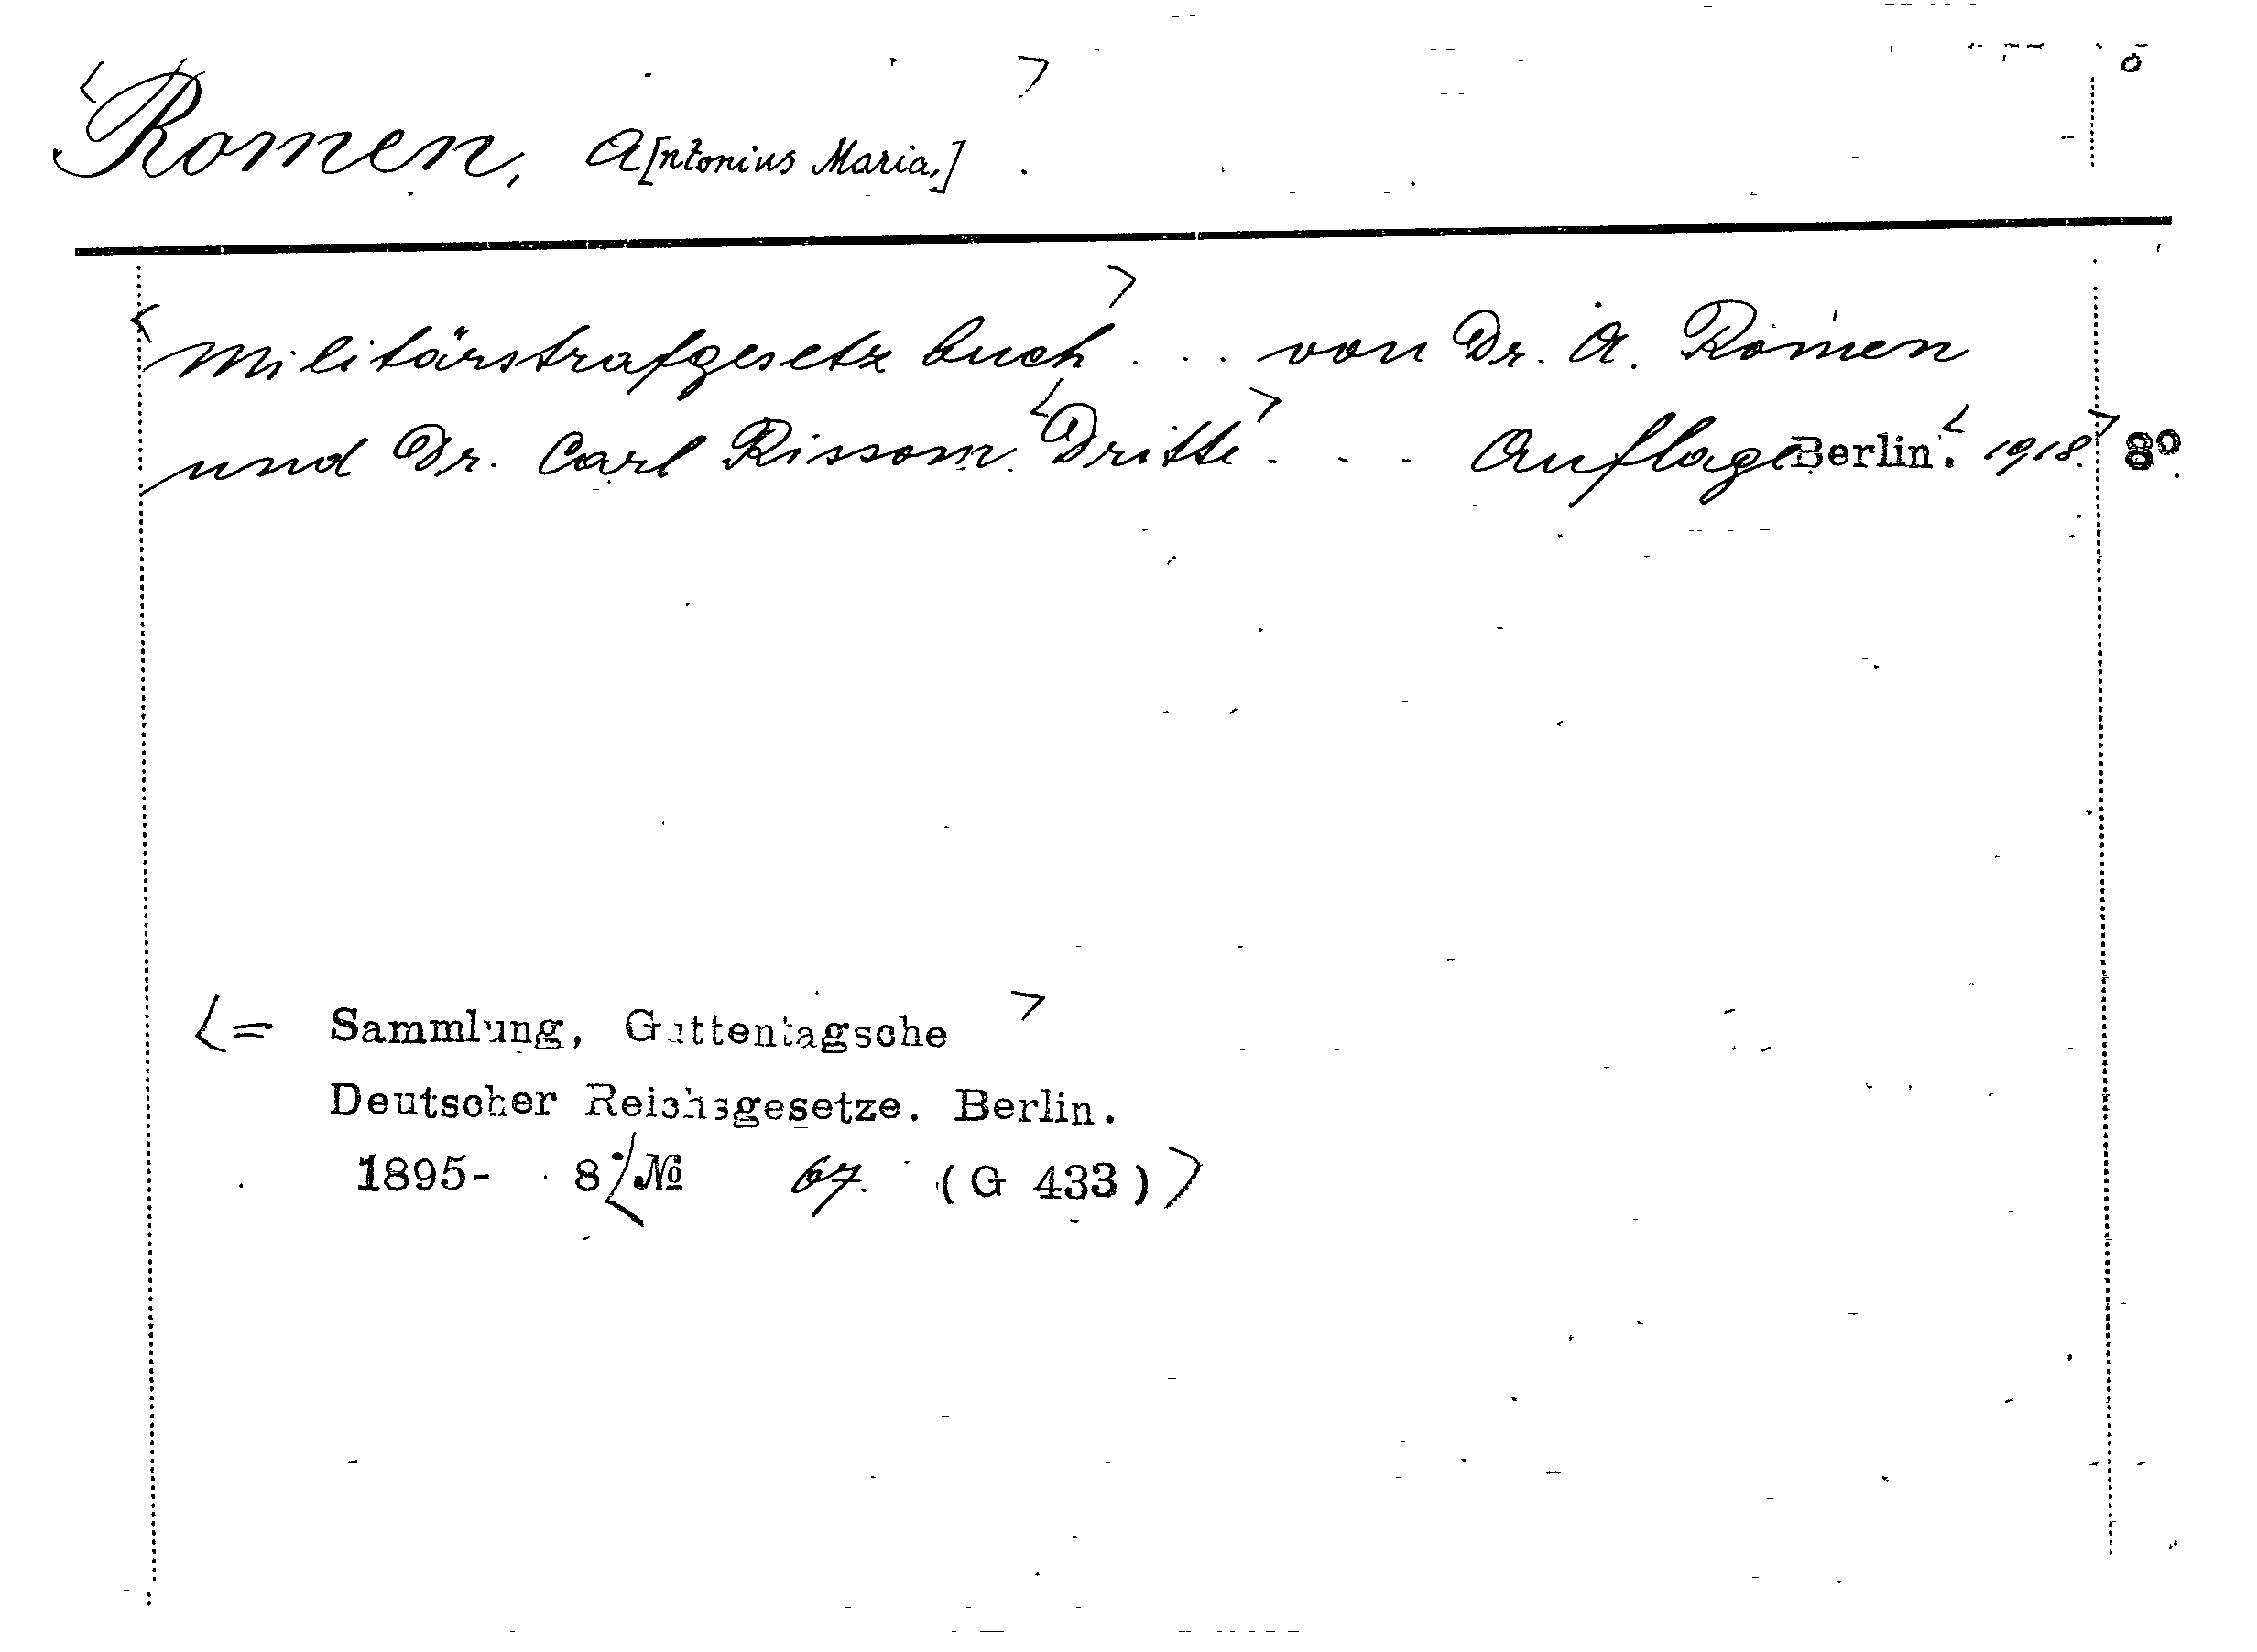 <Romen, A[ntonius Maria,]>
<Militärstrafgesetzbuch> ... von Dr. A. Romen
und Dr. Carl Rissom. <Dritte> ... Auflage Berlin. <1918.> 8º
<= Sammlung, Guttentagsche>
Deutscher Reichsgesetze. Berlin.
1895- 8. <№ 67. (G 433)>